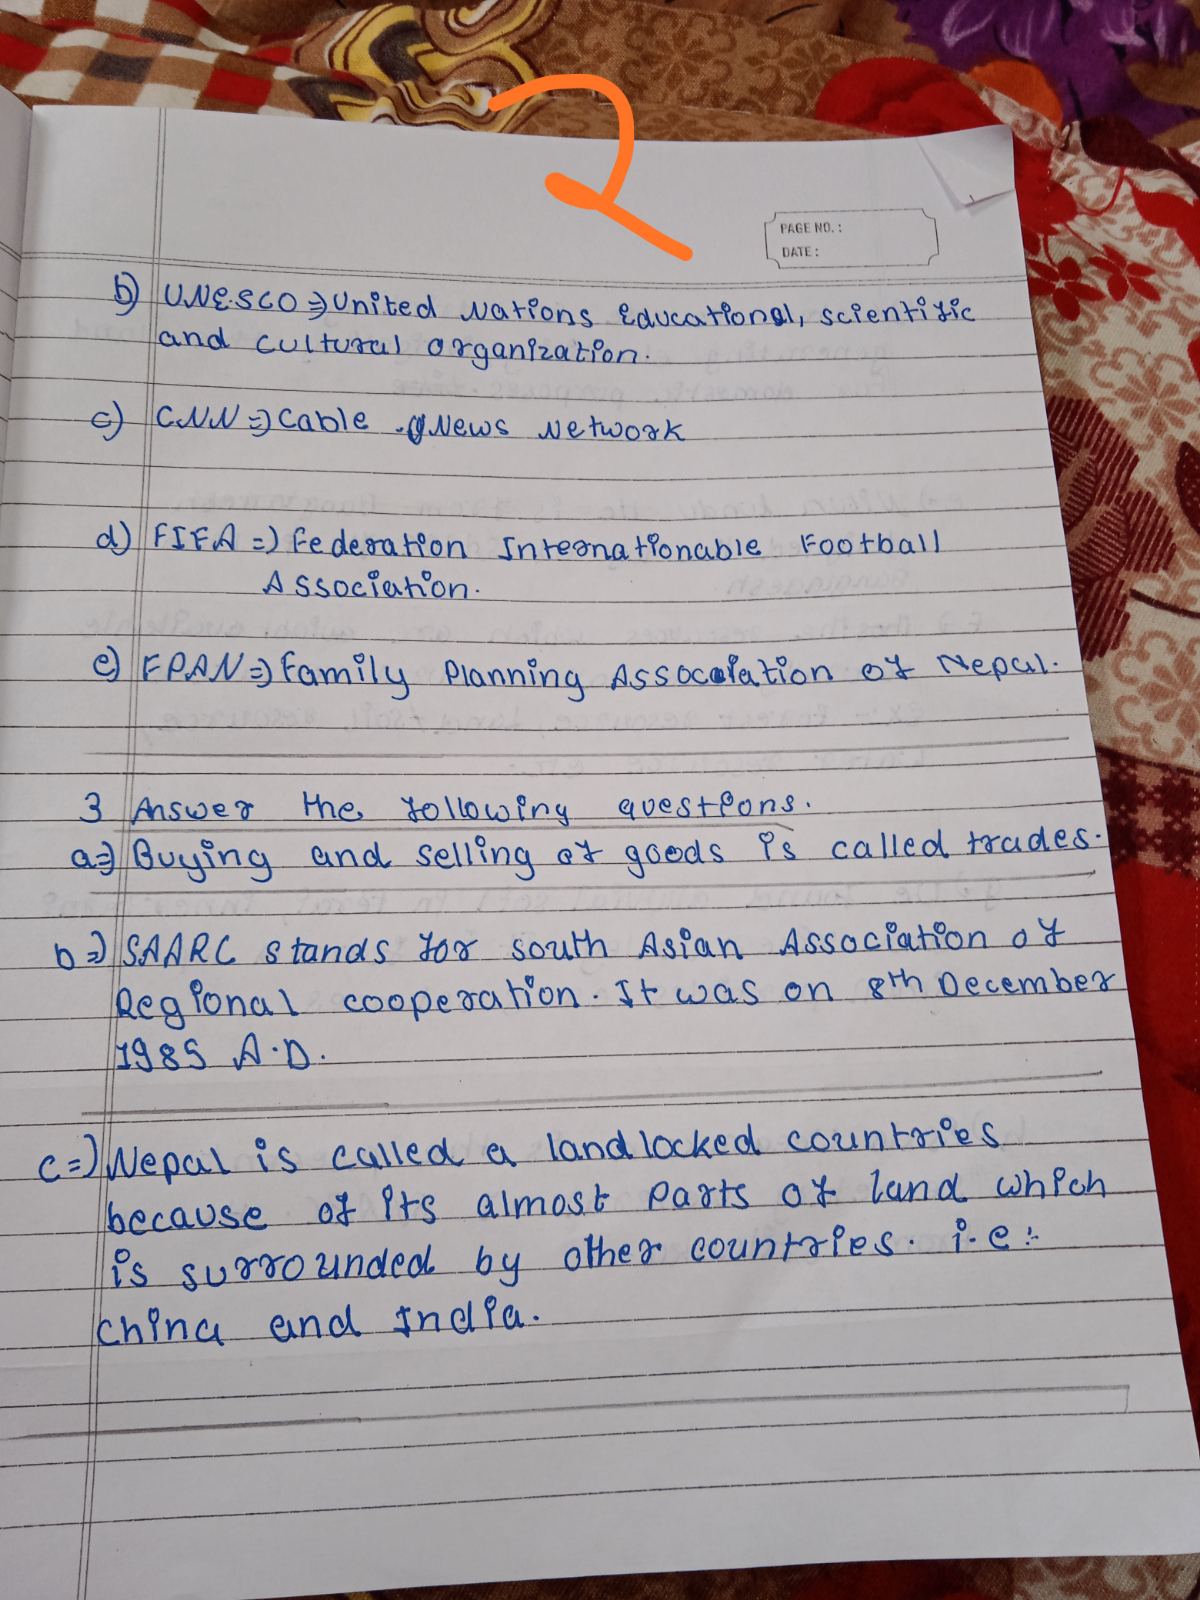 2
PAGE NO.:
DATE:
b) UNESCO => United Nations Educational, scientific
and cultural organization.
c) CNN => Cable News Network
d) FIFA => Federation Internationable Football
Association.
e) FPAN => Family Planning Association of Nepal.
3 Answer the following questions.
a => Buying and selling of goods is called trades.
b => SAARC stands for south Asian Association of
Regional cooperation. It was on 8th December
1985 A.D.
c => Nepal is called a landlocked countries
because of its almost parts of land which
is surrounded by other countries. i.e :-
china and India.